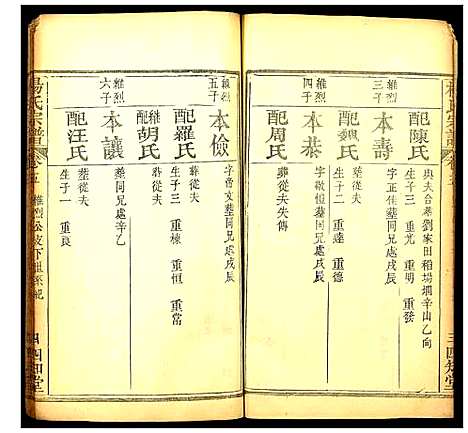 楊氏宗譜 卷五
三 四知堂
配陳氏
與夫合墓劉家田稻場堈辛山乙向
生子三 重光 重明 重發
維烈三子
本壽
墓同兄處戌辰
配魏氏
葬從夫
生子二 重達 重德
維烈四子
本恭
字敬恒墓同兄處戌辰
配周氏
葬從夫失傳
維烈五子
本儉
字會文墓同兄處戌辰
葬從夫
配羅氏
生子三 重棟 重恒 重常
繼配胡氏
葬從夫
維烈六子
本讓
墓同兄處辛乙
配汪氏
葬從夫
生子一 重良
楊氏宗譜 卷五
維烈公支下祖系紀
四 四知堂